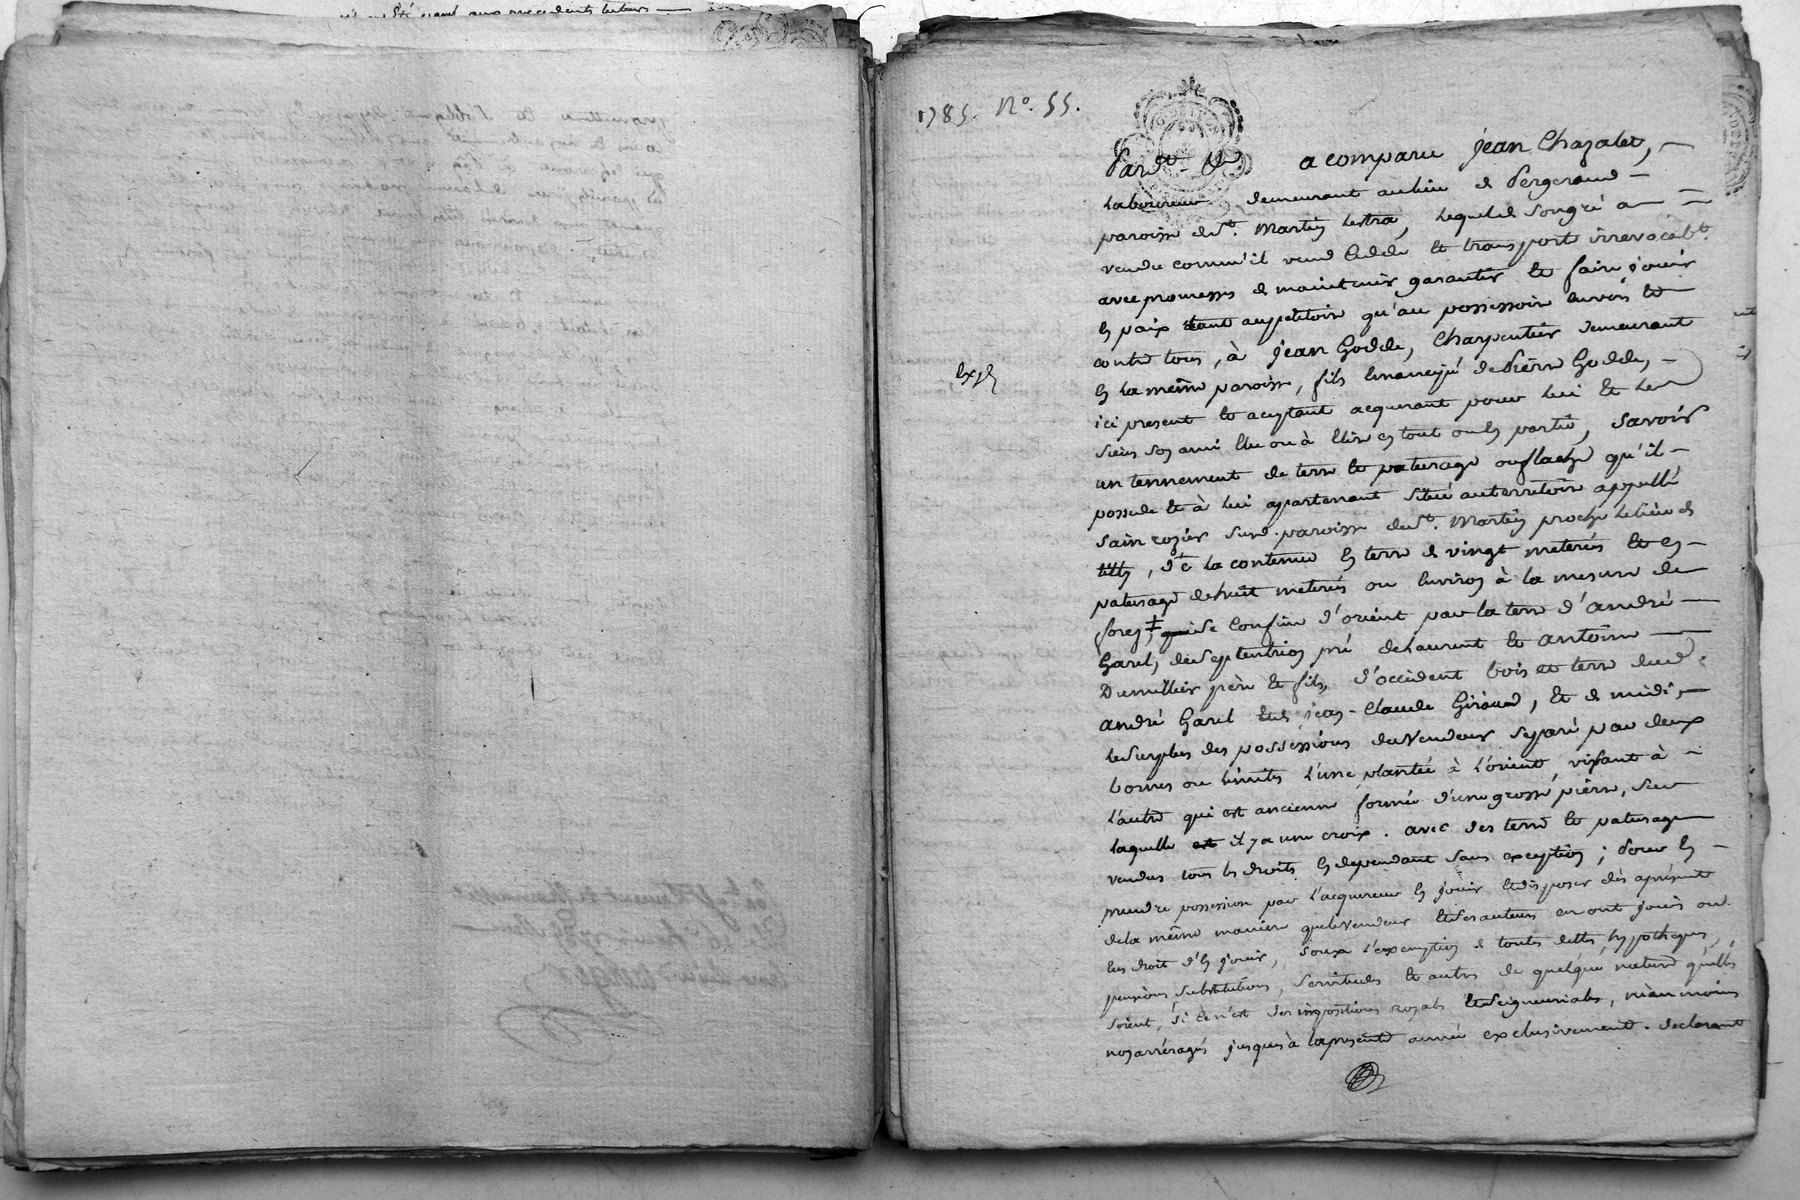 1785. N.º 55.
Pard.t N.re a comparu jean Chazalet,
Laboureur demeurant au lieu de Pergeraud
paroisse de S.t Martin Lestra, lequel de son gré a
vendu comm'il vend cedde et transporte irrevocab.t
avec promesses de maintenir garantir et faire jouir
en paix tant au petitoire qu'au possessoire envers et
contre tous, à jean Godde, Charpentier demeurant
en la même paroisse, fils emancipé de Pierre Godde,
Exp.é
ici present et aceptant acquerant pour lui et les
siens son ami elu ou à elire en tout ou en partie, savoir
un tennement de terre et paturage ou flache qu'il
possede et à lui appartenant situé au territoire appellé
sain rozier sur d. paroisse de S.t Martin proche le lieu de
, de la contenue en terre de vingt meterés et en
paturage de huit meterés ou environ à la mesure de
forez, qui se confine d'orient par la terre d'andré
Garel, de septentrion pré de Laurent et antoine
Dumillier père et fils, d'occident bois et terre dud.
andré Garel et de jean-Claude Giraud, et de midi,
le surplus des possessions du Vendeur separé par deux
bornes ou limites l'une plantée à l'orient, visant à
l'autre qui est ancienne formée d'une grosse pièrre, sur
laquelle il y a une croix. avec des terre et paturage
vendus tous les droits en dependant sans exception; Pour en
prendre possession par l'acquereur en jouir et disposer dès apresent
de la même maniere que le Vendeur et ses auteurs en ont jouis ou
eu droit d'en jouir, sous l'exemption de toutes dettes, hypotheques,
pensions substitutions, servitudes et autres de quelque nature qu'elles
soient, si ce n'est des impositions royales et seigneuriales, neanmoins
non arréragés jusques à la presente année exclusivement. declarant